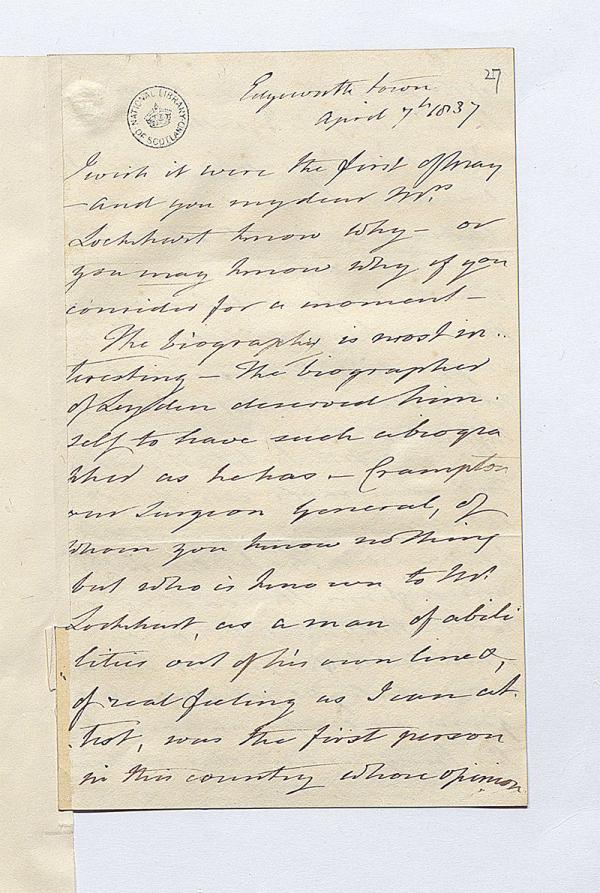 27
NATIONAL LIBRARY OF SCOTLAND
Edgeworth town
April 7th 1837
I wish it were the first of May
- and you my dear Mrs
Lockhart know why - or
you may know why if you
consider for a moment -
The biography is most in..
teresting - The biographer
of Leyden deserved him.
self to have such a biogra
pher as he has - Crampton
our Surgeon General, of
whom you know nothing
but who is known to Mr
Lockhart, as a man of abili
lities out of his own line &,
of real feeling as I can at.
.test, was the first person
in this country whose opinion